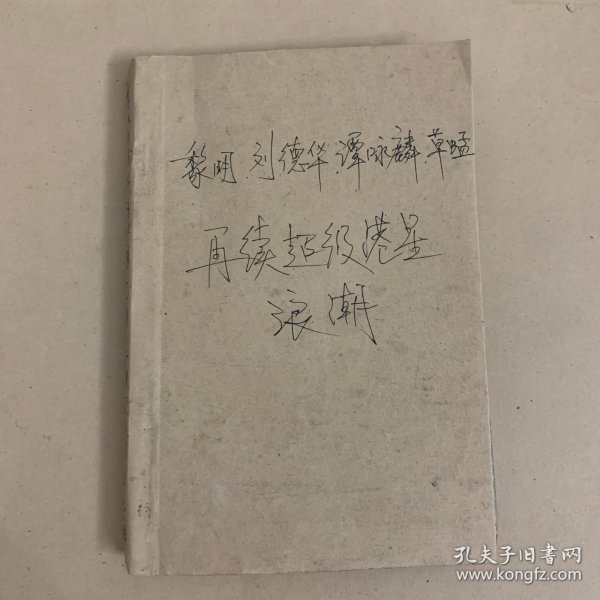 黎明.刘德华.谭咏麟.草蜢
再续超级港星
浪潮
孔夫子旧书网
www.kongfz.com